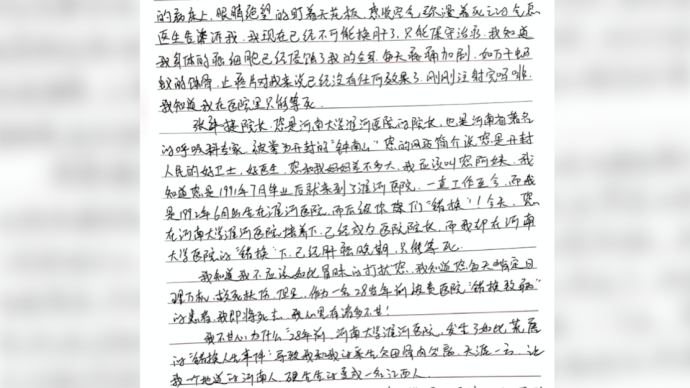 的病床上，眼睛绝望的盯着天花板，感觉空气弥漫着死亡的气息
医生告诉我，我现在已经不可能换肝了，只能保守治疗，我知道
我身体的癌细胞已经侵蚀了我的全身，每天疼痛加剧，如万千蚂
蚁的啃噬，止疼片对我来说已经没有任何效果了，刚刚注射完吗啡，
我知道我在医院里只能等死。
张祎捷院长，您是河南大学淮河医院的院长，也是河南省著名
的呼吸科专家，被誉为开封的"钟南山"，您的网站简介说您是开封
人民的好卫士，好医生，您和我妈妈差不多大，我应该叫您阿姨，我
知道您是1991年7月毕业后就来到了淮河医院，一直工作至今，而我
是1992年6月出生在淮河医院，而后被你院们"错换"！今天，您
在河南大学淮河医院，已经成为医院院长，而我却在河南
大学医院的"错换"下，已经肝癌晚期，只能等死。
我知道我不应该如此冒昧的打扰您，我知道您每天肯定日
理万机，救死扶伤，但是，作为一名28岁年前被贵医院"错换致病"
的患者，我即将死去，我心里有诸多不甘！
我不甘心为什么？28年前，河南大学淮河医院，发生了如此荒唐
的"错换人生事件"导致我和我的亲生父母骨肉分离，天涯一方，让
我一个地道的河南人，硬生生的变成一名江西人。